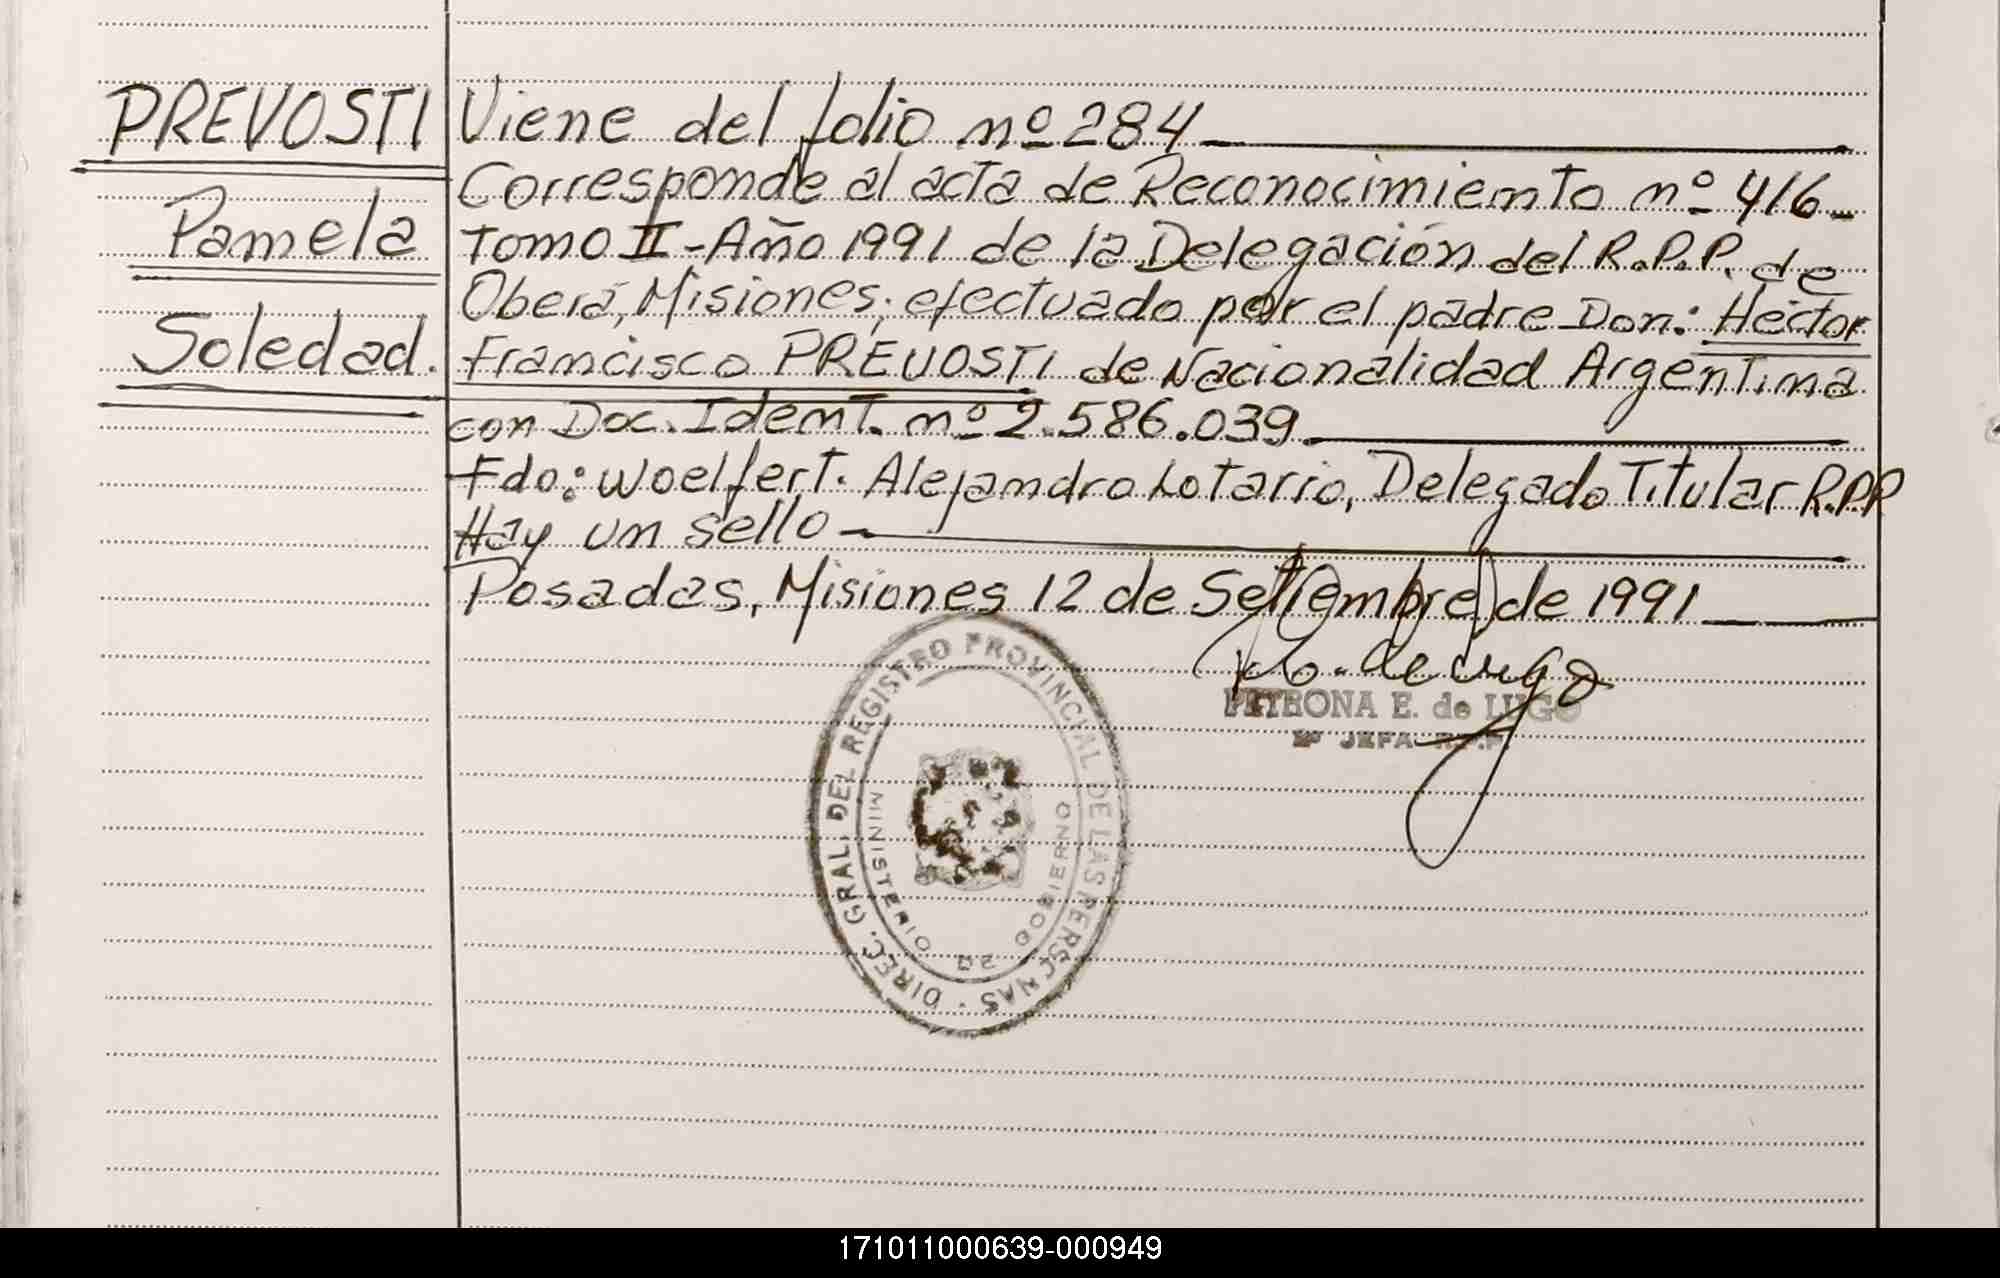 PREVOSTI
Pamela
Soledad.
Viene del folio nº 284
Corresponde al acta de Reconocimiento nº 416-
Tomo II - Año 1991 de la Delegación del R.P.P. de
Oberá, Misiones; efectuado por el padre Don: Héctor
Francisco PREVOSTI de Nacionalidad Argentina
con Doc. Ident. nº 2.586.039.
Fdo: Woelfert. Alejandro Lotario, Delegado Titular R.P.P
Hay un sello
Posadas, Misiones 12 de Setiembre de 1991
PETRONA E. de LUGO
JEFA R.P.P.
DIREC. GRAL. DEL REGISTRO PROVINCIAL DE LAS PERSONAS -
MINISTERIO DE GOBIERNO
171011000639-000949